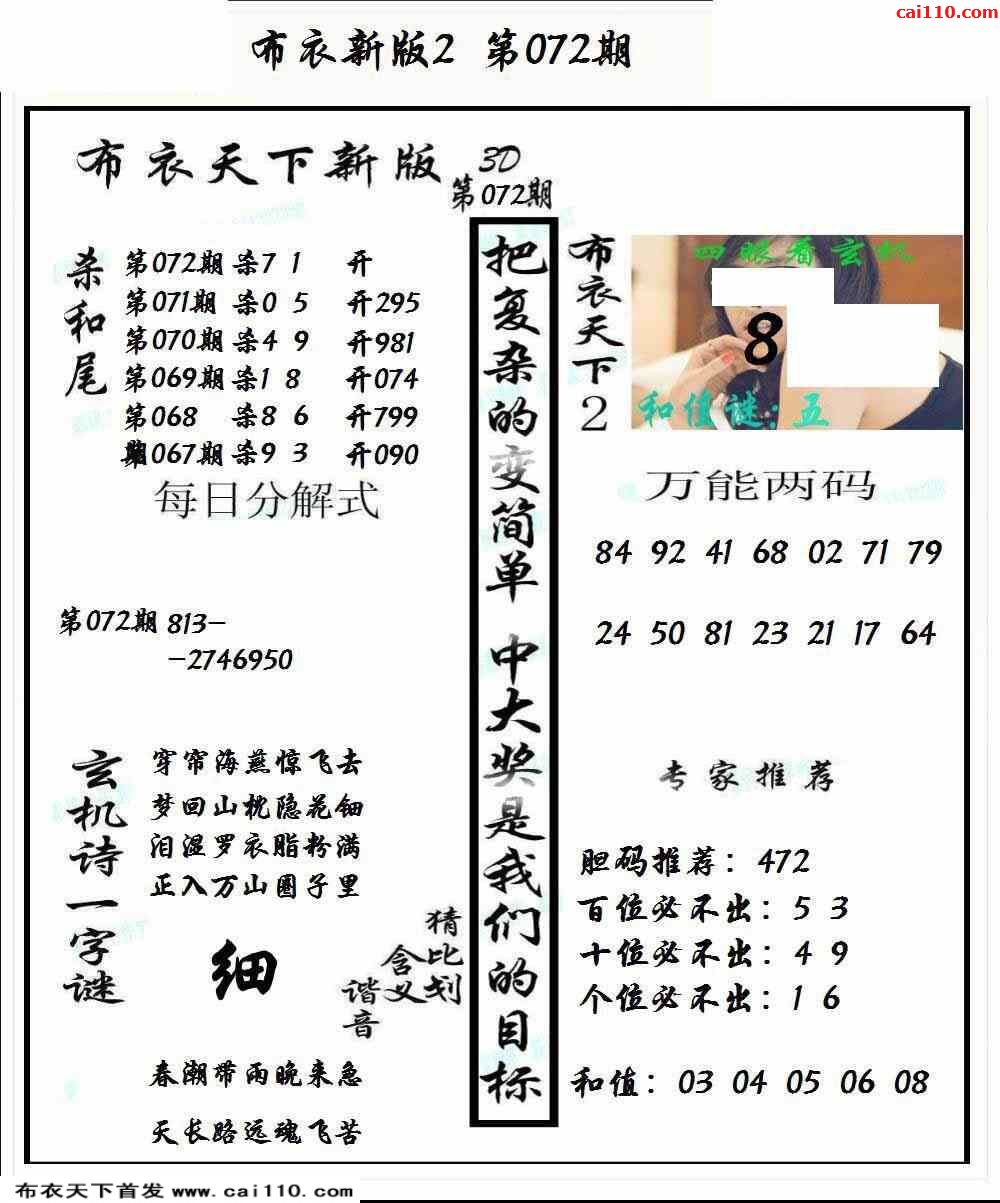 cai110.com
布衣新版2 第072期
布衣天下新版 3D
第072期
杀和尾
第072期 杀7 1 开
第071期 杀0 5 开295
第070期 杀4 9 开981
第069期 杀1 8 开074
第068 杀8 6 开799
067期 杀9 3 开090
每日分解式
第072期 813-
-2746950
玄机诗一字谜
穿帘海燕惊飞去
梦回山枕隐花钿
泪湿罗衣脂粉满
正入万山圈子里
细
猜比划
含义
谐音
春潮带雨晚来急
天长路远魂飞苦
把复杂的变简单 中大奖是我们的目标
布衣天下2
四眼看玄机
8
和值谜:五
万能两码
84 92 41 68 02 71 79
24 50 81 23 21 17 64
专家推荐
胆码推荐：472
百位必不出：5 3
十位必不出：4 9
个位必不出：1 6
和值：03 04 05 06 08
布衣天下首发 www.cai110.com